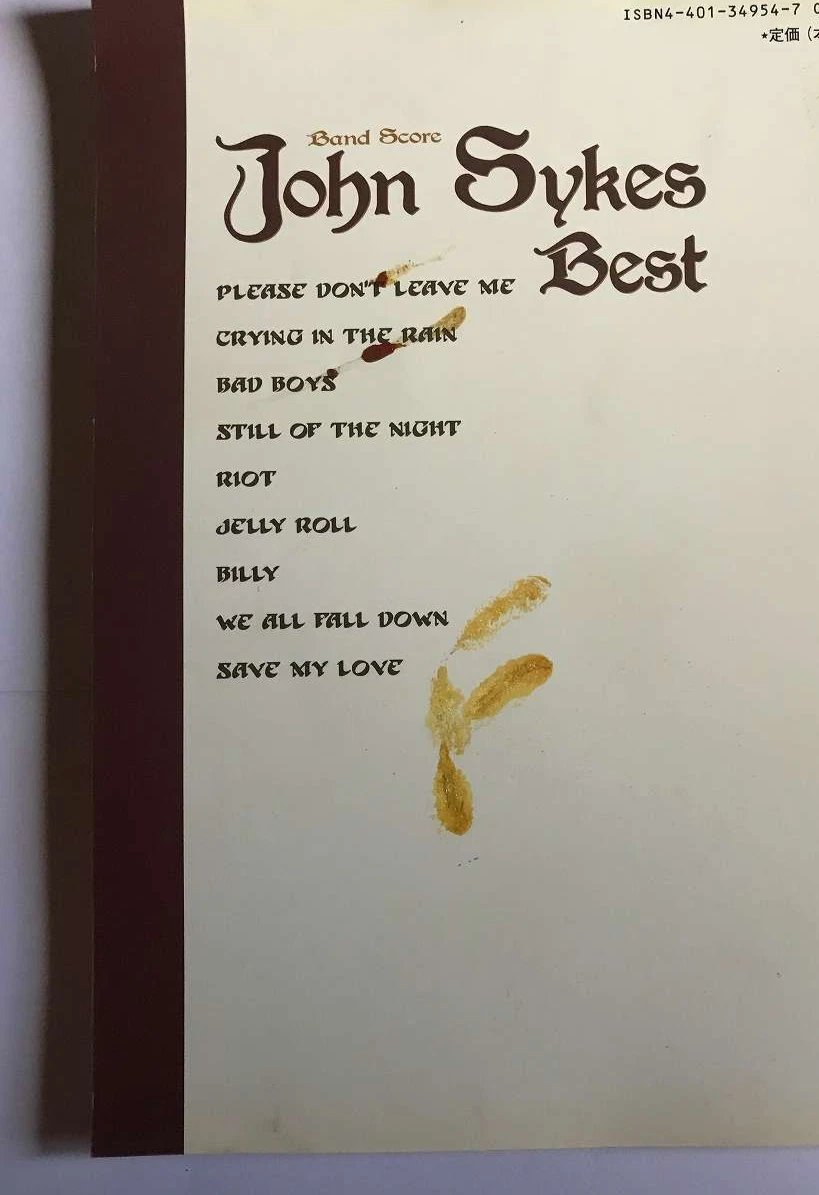 ISBN4-401-34954-7
★定価（
Band Score
John Sykes
Best
PLEASE DON'T LEAVE ME
CRYING IN THE RAIN
BAD BOYS
STILL OF THE NIGHT
RIOT
JELLY ROLL
BILLY
WE ALL FALL DOWN
SAVE MY LOVE